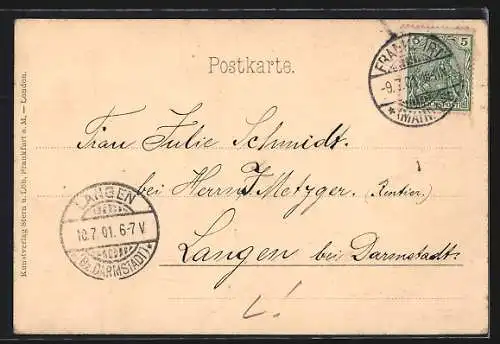 Postkarte.
FRANKFURT
-9.7.01
(MAIN)
5
Frau Julie Schmidt.
bei Herrn J Metzger. (Rentier.)
Langen bei Darmstadt.
LANGEN
10.7.01. 6-7V
(Bz. DARMSTADT)
Kunstverlag Stern u. Löb, Frankfurt a. M. — London.